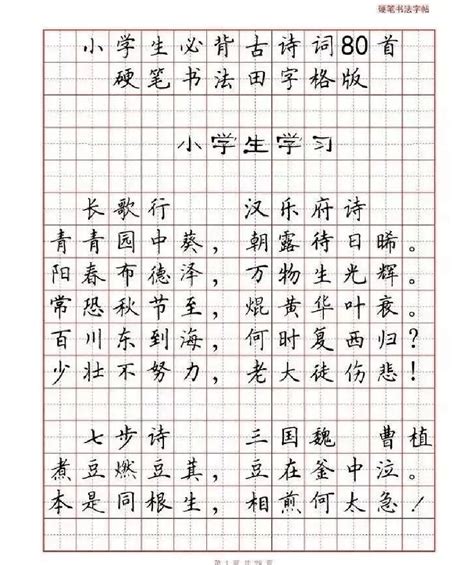 硬笔书法字帖
小学生必背古诗词80首
硬笔书法田字格版
小学生学习
长歌行 汉乐府诗
青青园中葵，朝露待日晞。
阳春布德泽，万物生光辉。
常恐秋节至，焜黄华叶衰。
百川东到海，何时复西归？
少壮不努力，老大徒伤悲！
七步诗 三国魏 曹植
煮豆燃豆萁，豆在釜中泣。
本是同根生，相煎何太急！